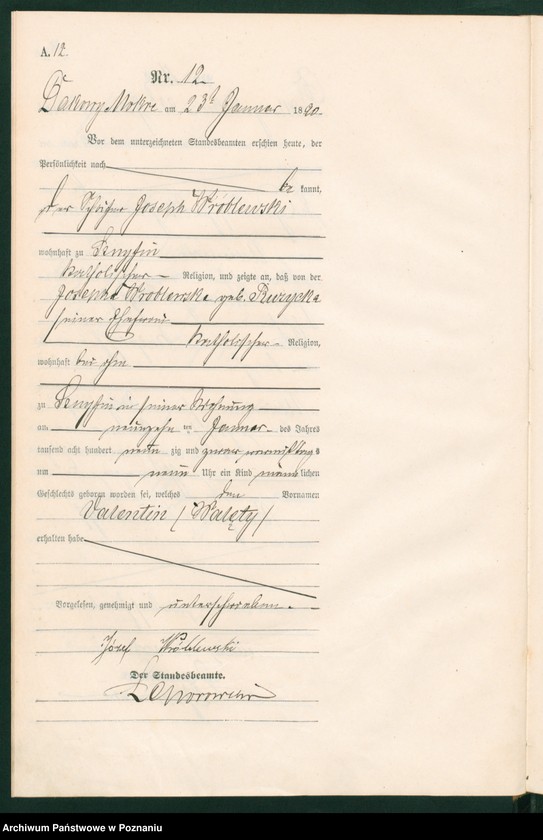 A. 12.
Nr. 12
Bukowy Mokre am 23t Januar 1890.
Vor dem unterzeichneten Standesbeamten erschien heute, der
Persönlichkeit nach
be kannt,
der Joseph Wróblewski
wohnhaft zu
katholischer Religion, und zeigte an, daß von der
Josepha Wróblewska geb. Ruzycka
seiner Ehefrau
katholischer Religion,
wohnhaft bei ihm
zu in seiner Wohnung
am neunzehn ten Januar des Jahres
tausend acht hundert neun zig und zwar vormittags
um neun Uhr ein Kind männlichen
Geschlechts geboren worden sei, welches den Vornamen
Valentin / Walęty /
erhalten habe
Vorgelesen, genehmigt und unterschrieben.
Józef Wróblewski
Der Standesbeamte.
Archiwum Państwowe w Poznaniu